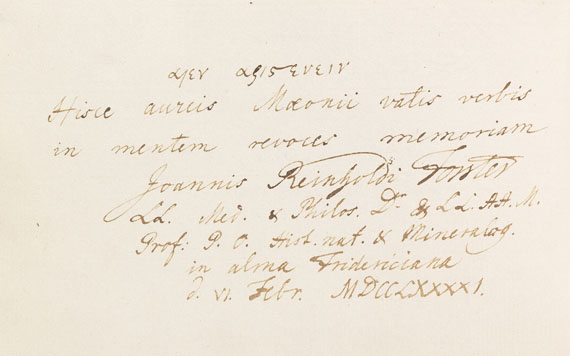 αιεν αριστευειν
Hisce aureis Mæonii vatis verbis
in mentem revoces memoriam
Joannis Reinholdi Forster
LL. Med. & Philos. Dr. & LL. AA. M.
Prof: P. O. Hist. nat. & Mineralog.
in alma Fridericiana
d. VI. Febr. MDCCLXXXXI.